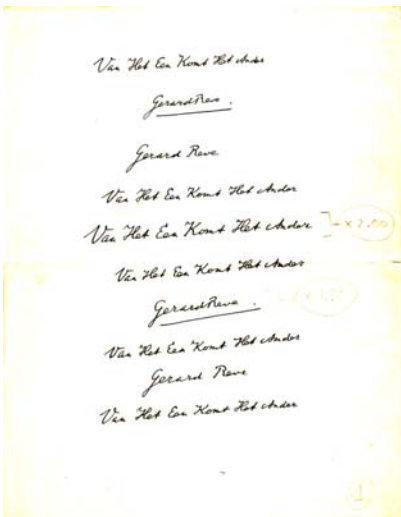 Van Het Een Komt Het Ander
Gerard Reve.
Gerard Reve
Van Het Een Komt Het Ander
Van Het Een Komt Het Ander ]-x 2.00
Van Het Een Komt Het Ander
Gerard Reve.
Van Het Een Komt Het Ander
Gerard Reve
Van Het Een Komt Het Ander
1